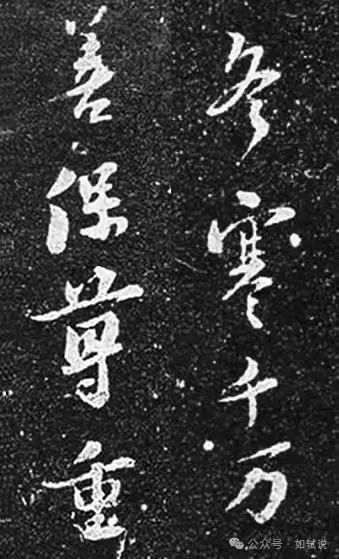 冬寒千万
善保尊重
公众号·如轼说